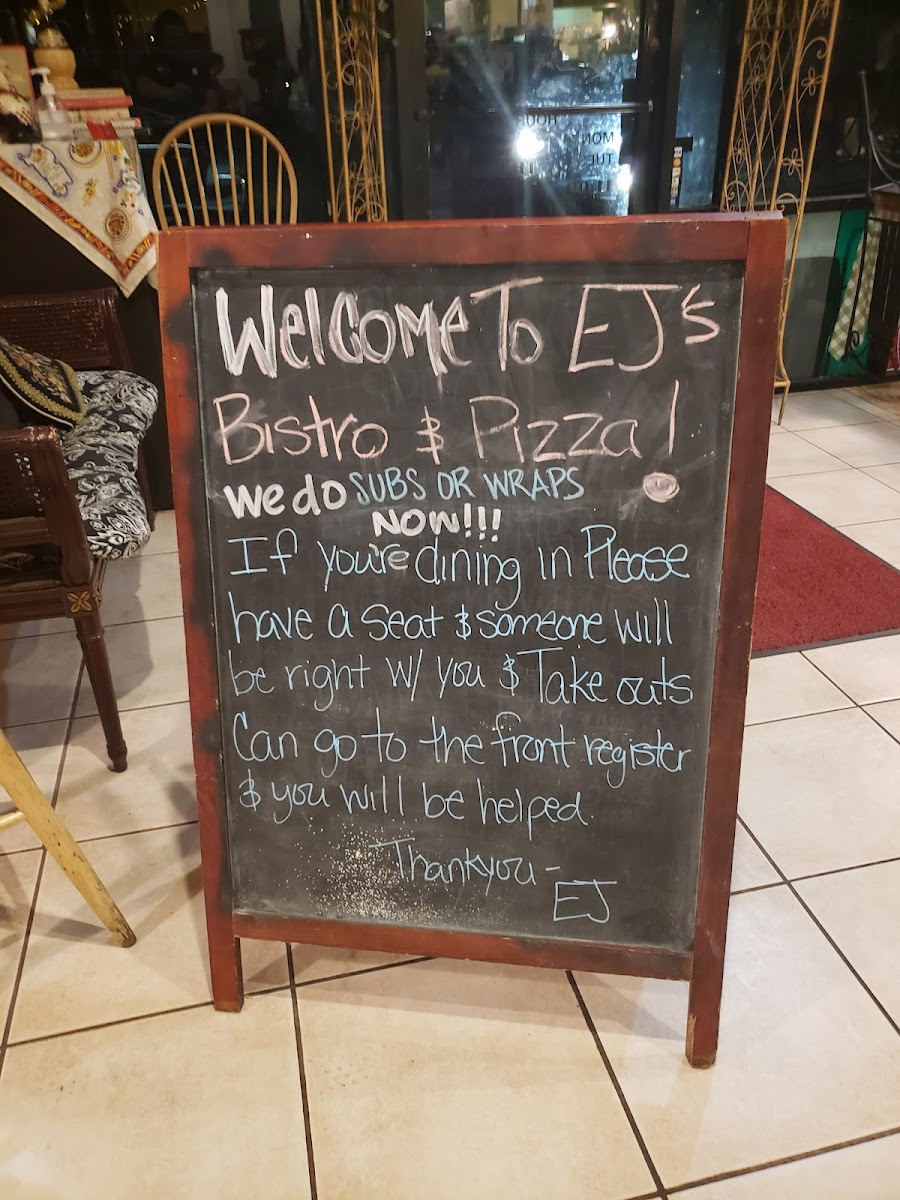 Welcome To EJ's
Bistro & Pizza!
we do SUBS OR WRAPS
NOW!!!
If you're dining in Please
have a seat & someone will
be right w/ you & Take outs
Can go to the front register
& you will be helped.
Thankyou -
EJ
HOU
MON
TUE